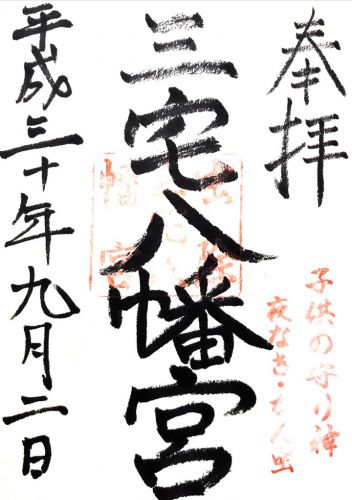 奉拝
子供の守り神
夜なき・かん虫
三宅八幡宮
平成三十年九月二日